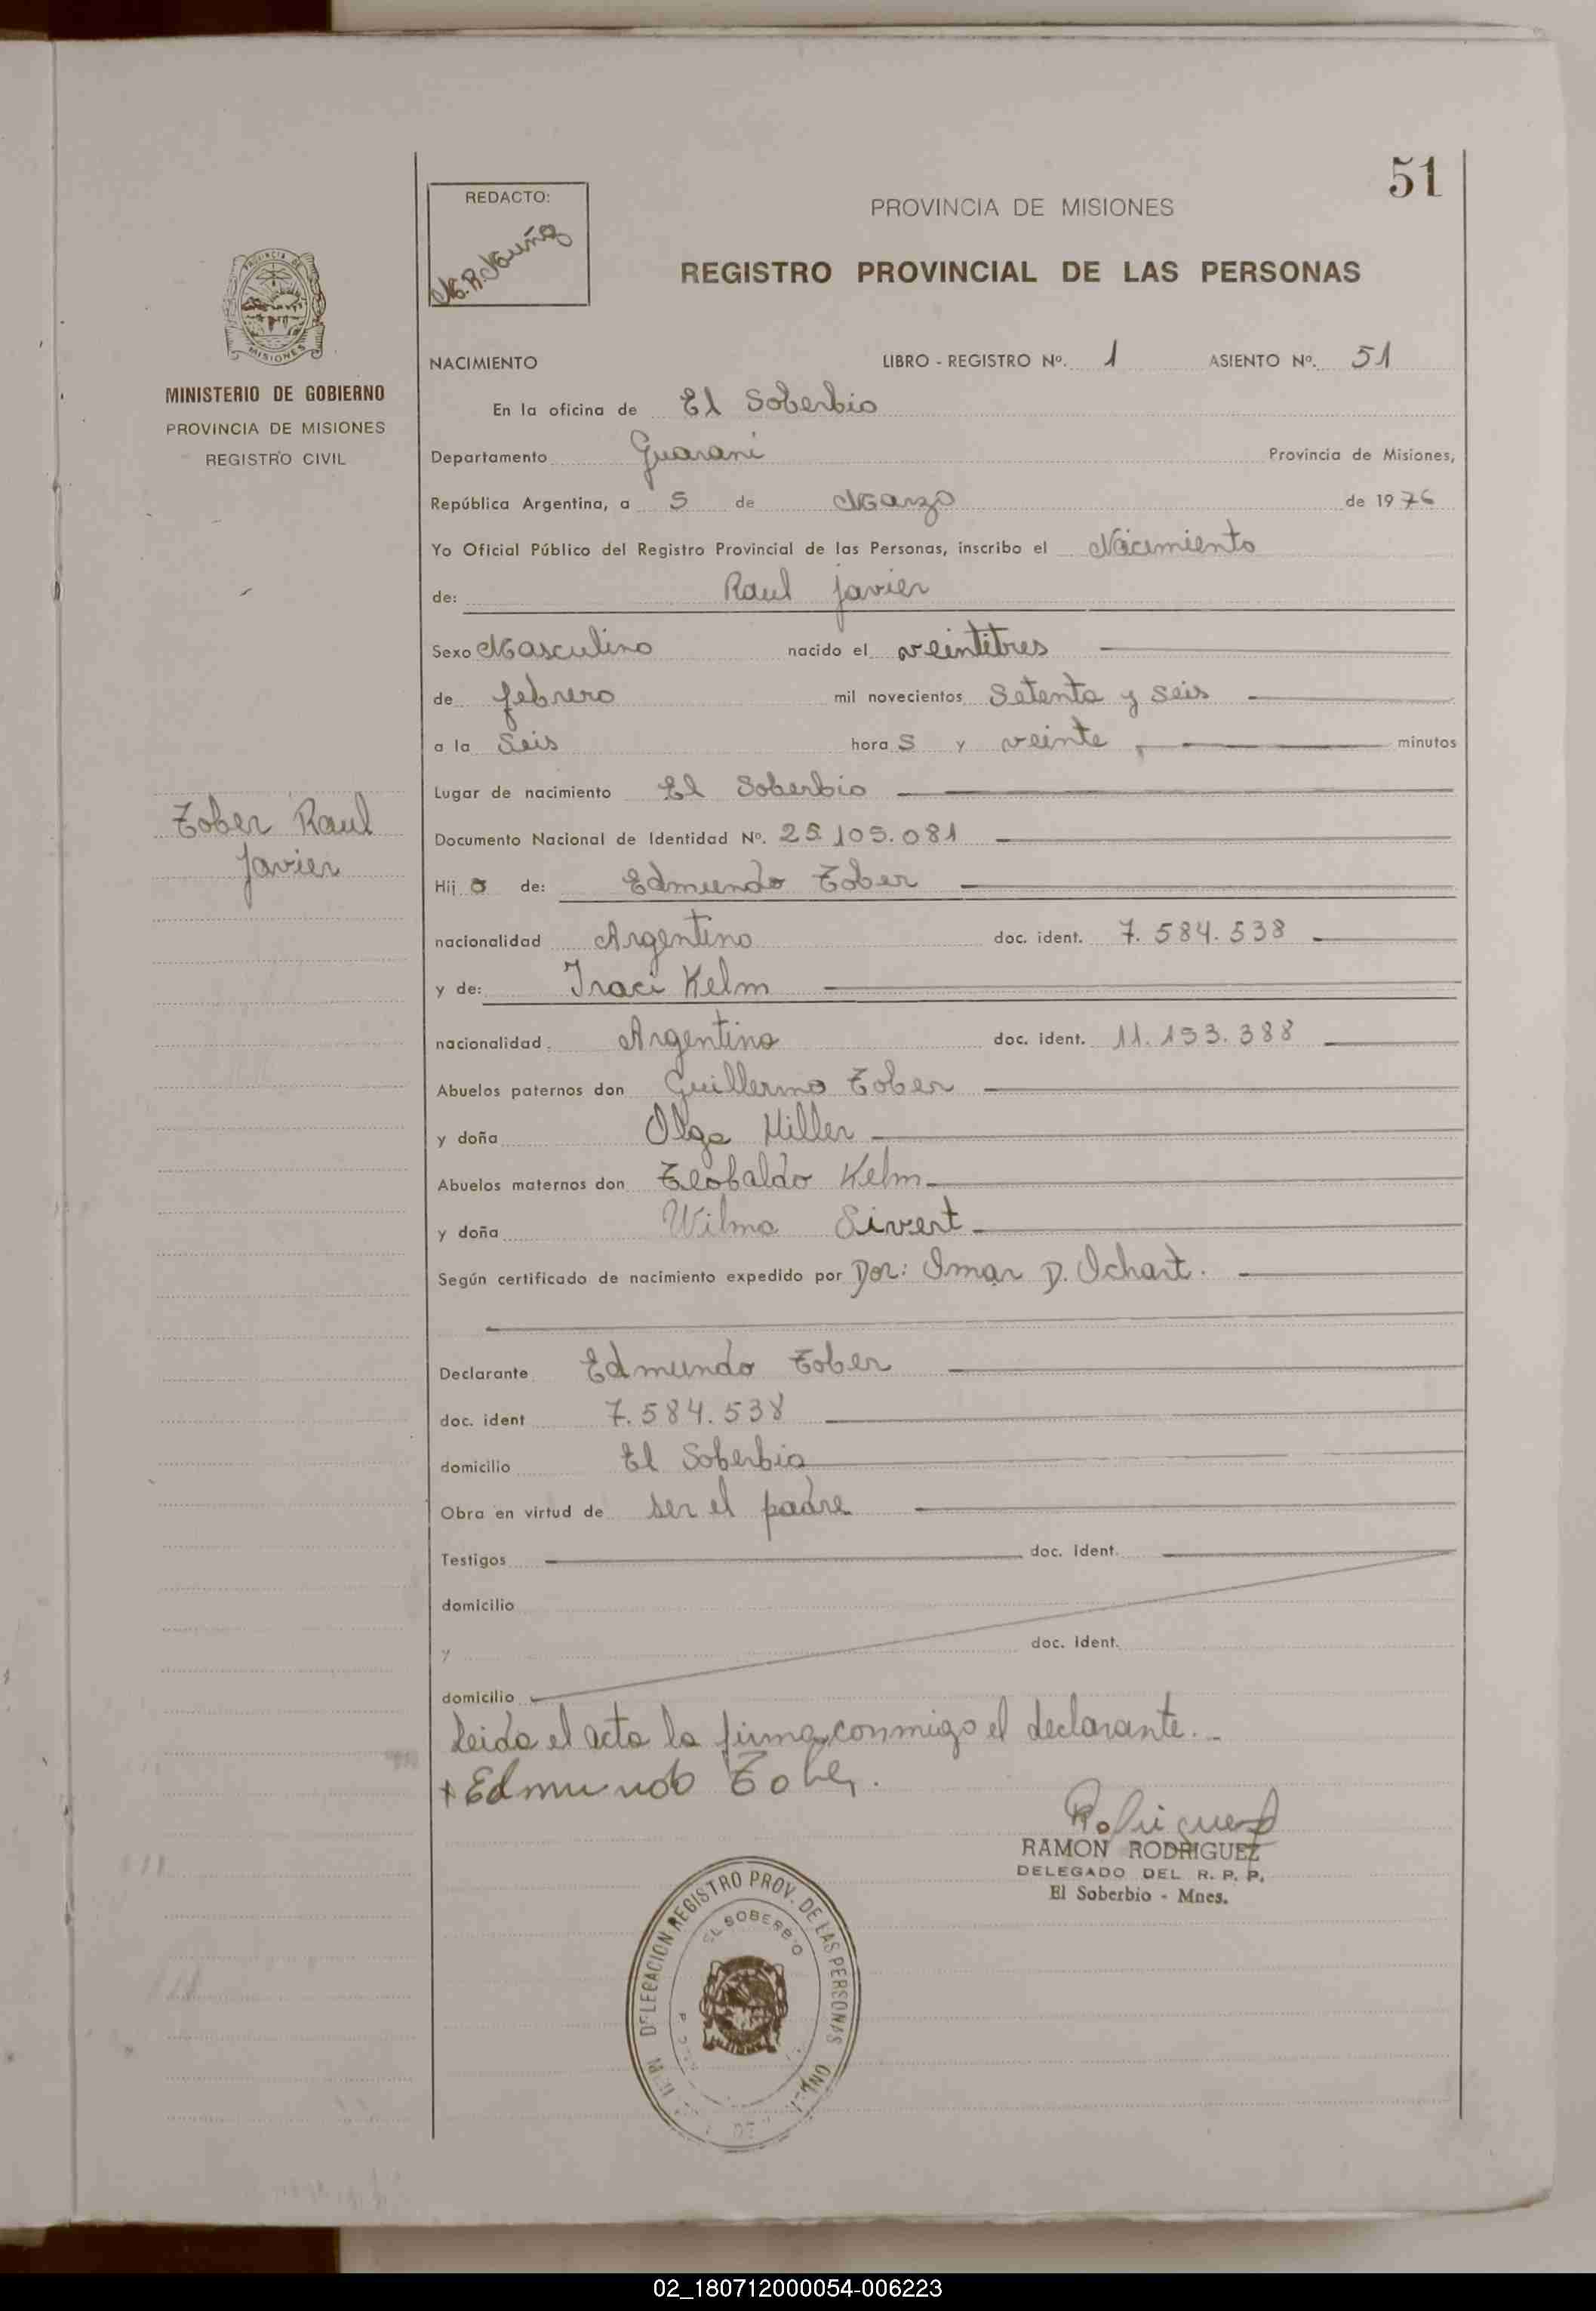 51
REDACTO:
PROVINCIA DE MISIONES
REGISTRO PROVINCIAL DE LAS PERSONAS
PROVINCIA DE
MISIONES
MINISTERIO DE GOBIERNO
PROVINCIA DE MISIONES
REGISTRO CIVIL
NACIMIENTO LIBRO - REGISTRO Nº. 1 ASIENTO Nº. 51
En la oficina de El Soberbio
Departamento Guaraní Provincia de Misiones,
República Argentina, a 5 de Marzo de 1976
Yo Oficial Público del Registro Provincial de las Personas, inscribo el Nacimiento
de: Raul Javier
Sexo Masculino nacido el veintitres
de febrero mil novecientos Setenta y Seis
a la Seis hora s y veinte minutos
Lugar de nacimiento El Soberbio
Zober Raul
Javier
Documento Nacional de Identidad Nº. 25.105.081
Hij o de: Edmundo Zober
nacionalidad Argentino doc. ident. 7.584.538
y de: Iraci Kelm
nacionalidad Argentina doc. ident. 11.193.388
Abuelos paternos don Guillermo Zober
y doña Olga Hiller
Abuelos maternos don Teobaldo Kelm
y doña Wilma Sivert
Según certificado de nacimiento expedido por Dor: Omar D. Ochart.
Declarante Edmundo Zober
doc. ident 7.584.538
domicilio El Soberbio
Obra en virtud de ser el padre
Testigos doc. ident.
domicilio
y doc. ident.
domicilio
Leida el acta la firma conmigo el declarante.
+ Edmundo Zober.
Rodriguez
RAMON RODRIGUEZ
DELEGADO DEL R. P. P.
El Soberbio - Mnes.
DELEGACION REGISTRO PROV. DE LAS PERSONAS
EL SOBERBIO
02_180712000054-006223